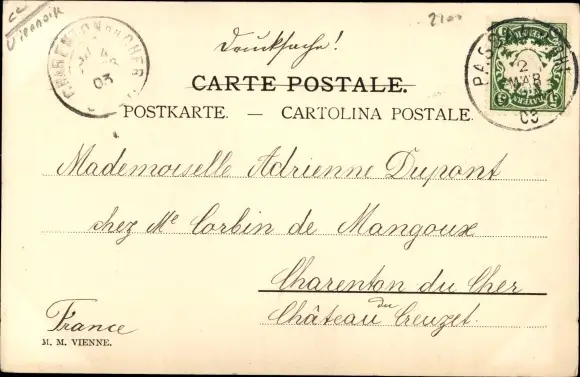 Drucksache!
2100
CHARENTON DU CHER
4
03
PASSAU
2
MAR
03
BAYERN
CARTE POSTALE.
POSTKARTE. — CARTOLINA POSTALE.
Mademoiselle Adrienne Dupont
chez Me Corbin de Mangoux
Charenton du Cher
Château du Creuzet.
France
M. M. VIENNE.